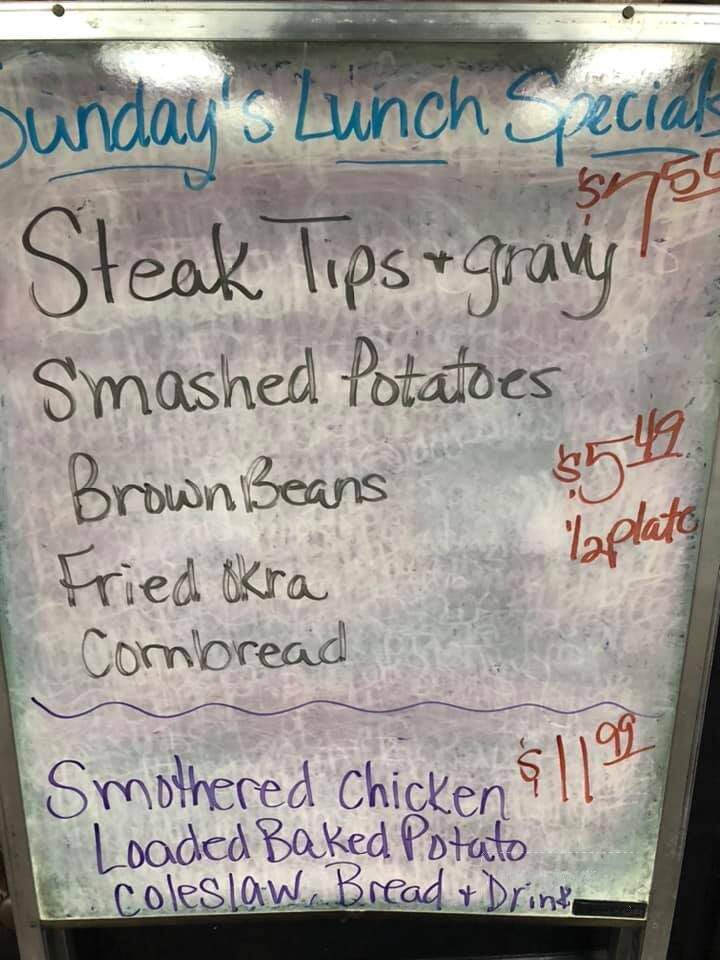 Sunday's Lunch Specials
$7.50
Steak Tips + gravy
Smashed Potatoes
Brown Beans
$5.49
1/2 plate
Fried Okra
Cornbread
$11.99
Smothered Chicken
Loaded Baked Potato
Coleslaw, Bread + Drink